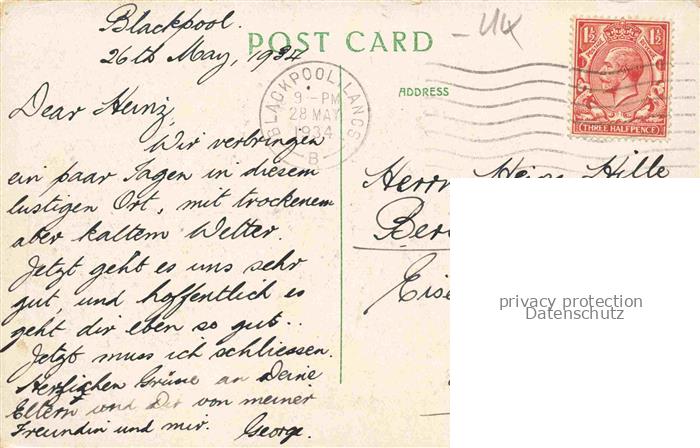 Blackpool.
26th May, 1934
POST CARD
UK
1½ 1½
POSTAGE REVENUE
THREE HALFPENCE
BLACKPOOL LANCS
9 - PM
28 MAY
1934
B
ADDRESS
Dear Heinz,
Wir verbringen
ein paar Tagen in diesem
lustigen Ort, mit trockenem
aber kaltem Wetter.
Jetzt geht es uns sehr
gut, und hoffentlich es
geht dir eben so gut..
Jetzt muss ich schliessen.
Herzlichen Grüsse an Deine
Eltern und Dir von meiner
Freundin und mir. George.
Herrn Heinz Hille
Ber
Eise
privacy protection
Datenschutz